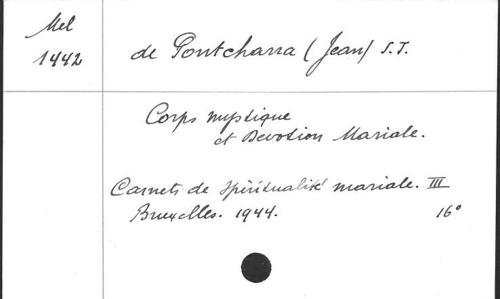 Mel
1442
de Pontcharra (Jean) S.J.
Corps mystique
et Devotion Mariale.
Carnets de spiritualité mariale. III
Bruxelles. 1944. 16°